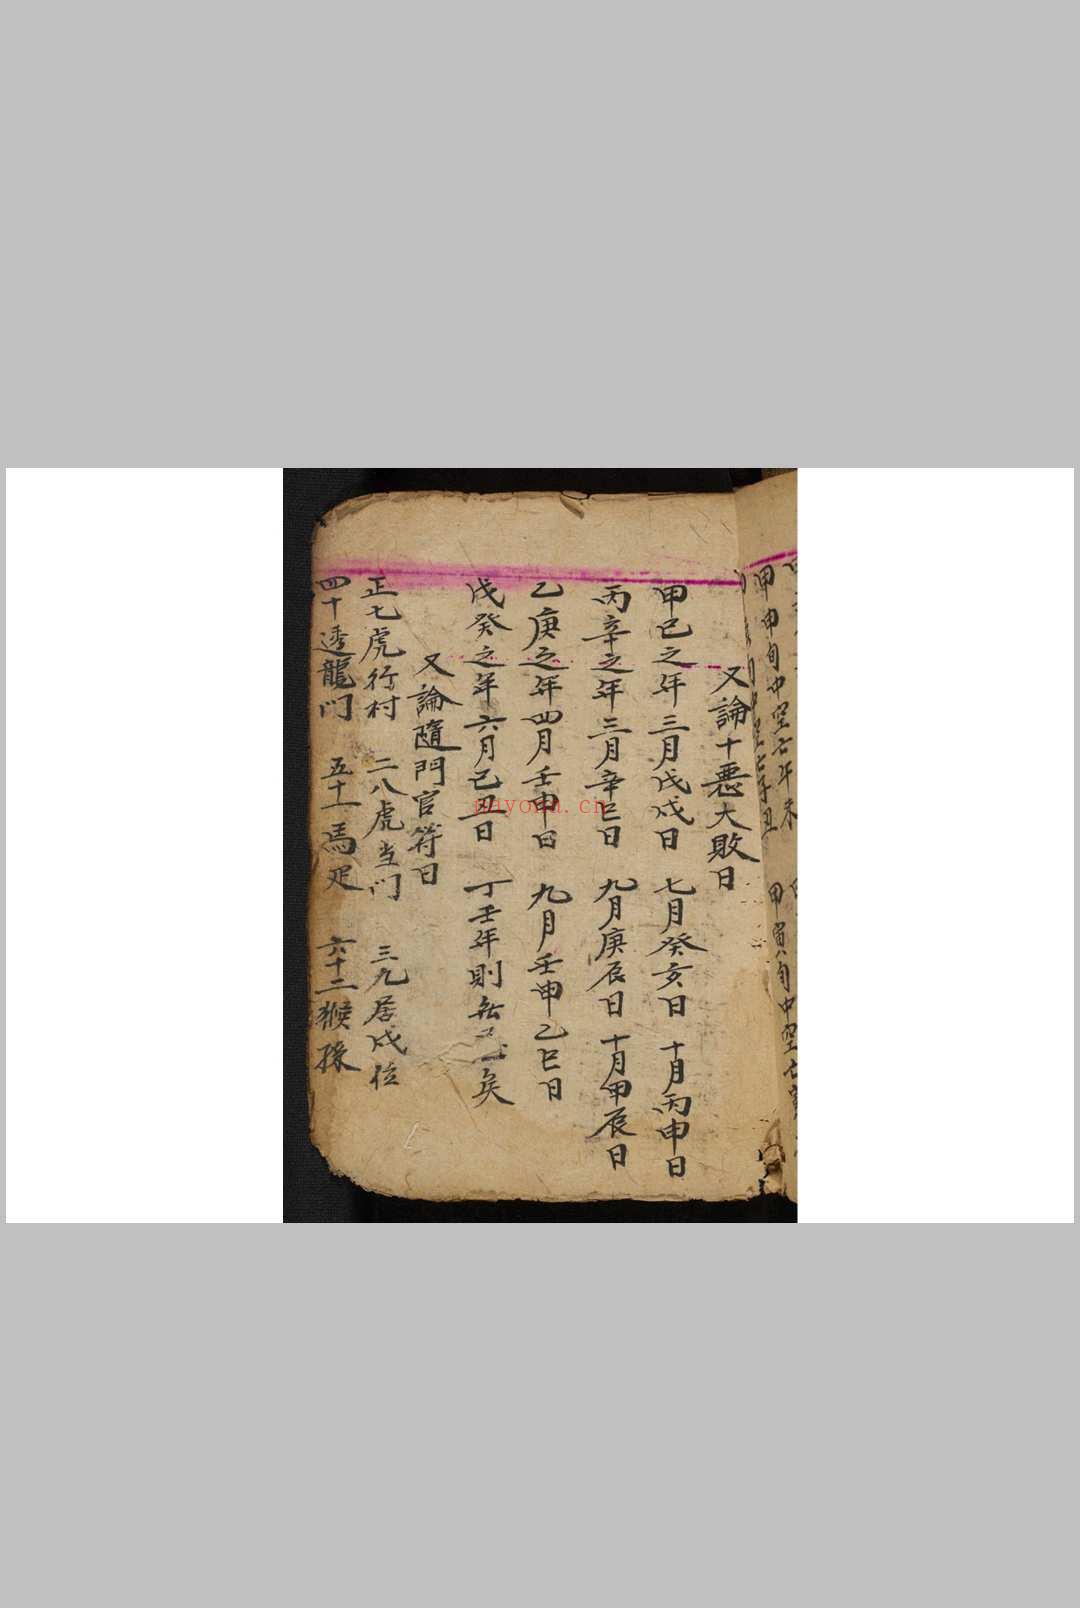 甲申旬中空亡午未
甲寅旬中空亡
又論十悪大敗日
甲己之年三月戊戌日 七月癸亥日 十月丙申日
丙辛之年三月辛巳日 九月庚辰日 十月甲辰日
乙庚之年四月壬申日 九月壬申乙巳日
戊癸之年六月己丑日 丁壬年則無 矣
又論隨門官符日
正七虎行村 二八虎当门 三九居戌位
四十透龍门 五十一馬足 六十二猴猻
nayona.cn